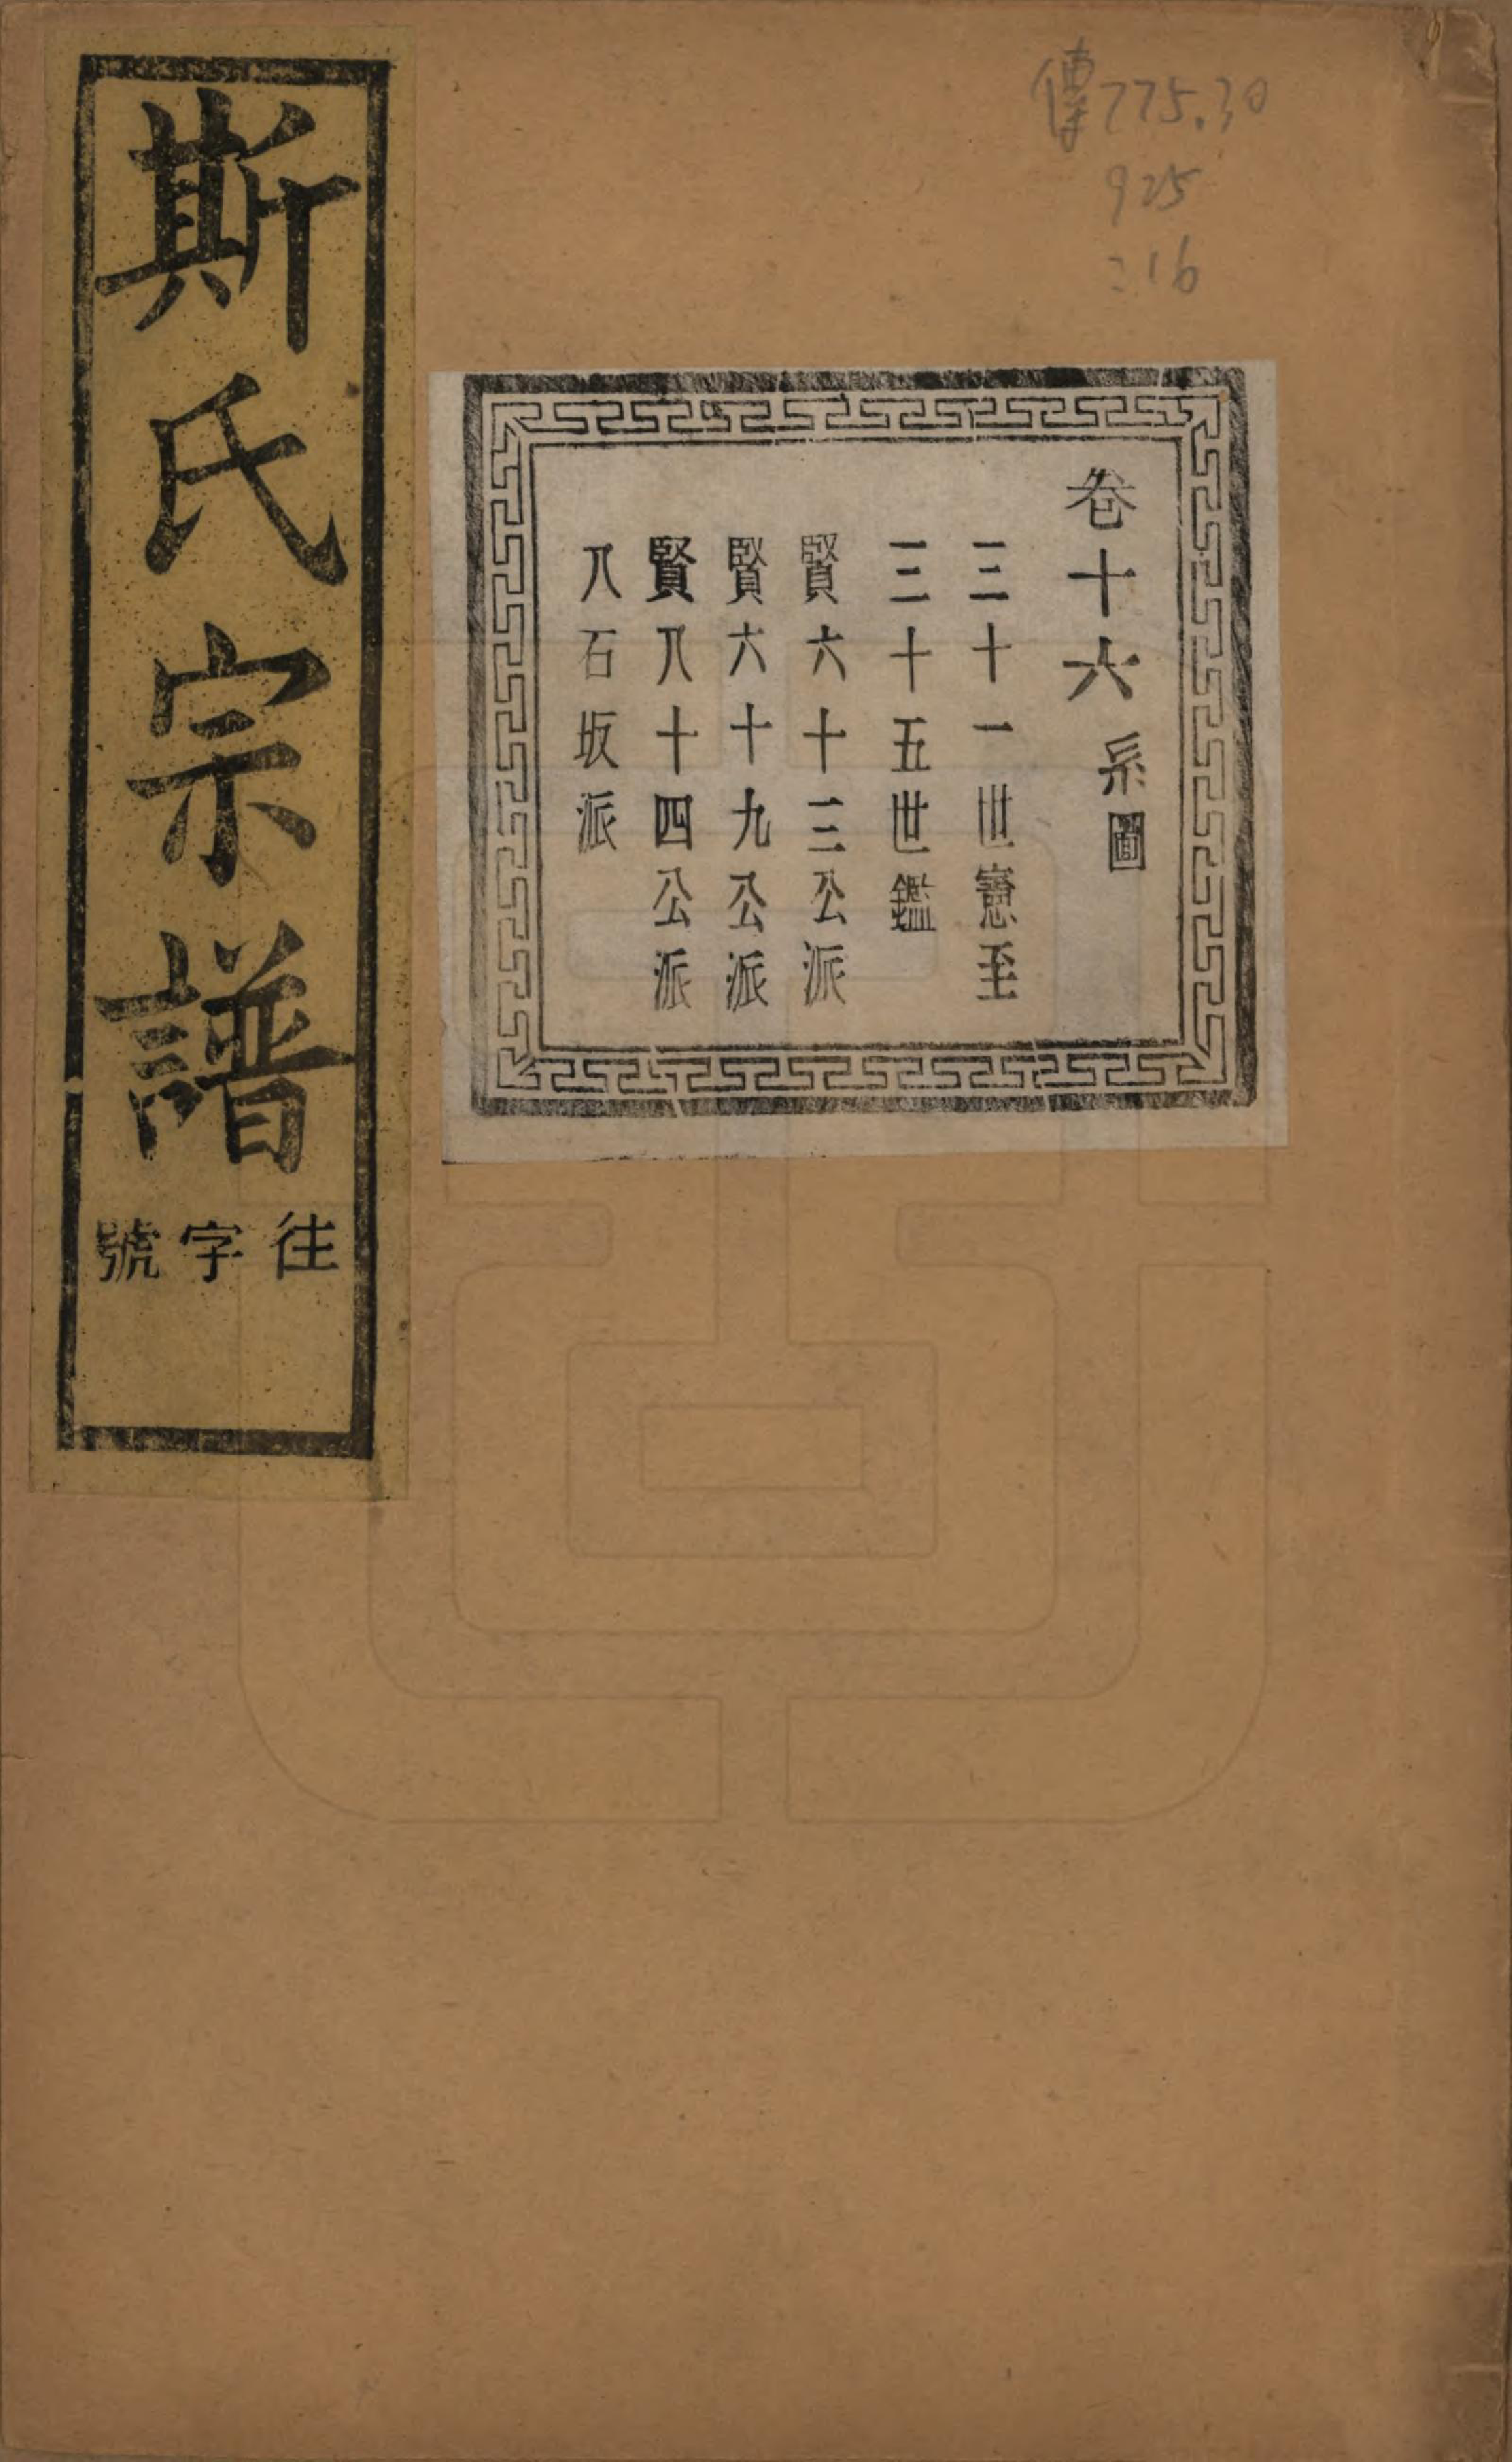 傳775.30
925
:16
斯氏宗譜
往字號
卷十六系圖
三十一世憲至
三十五世鑑
賢六十三公派
賢六十九公派
賢八十四公派
八石坂派